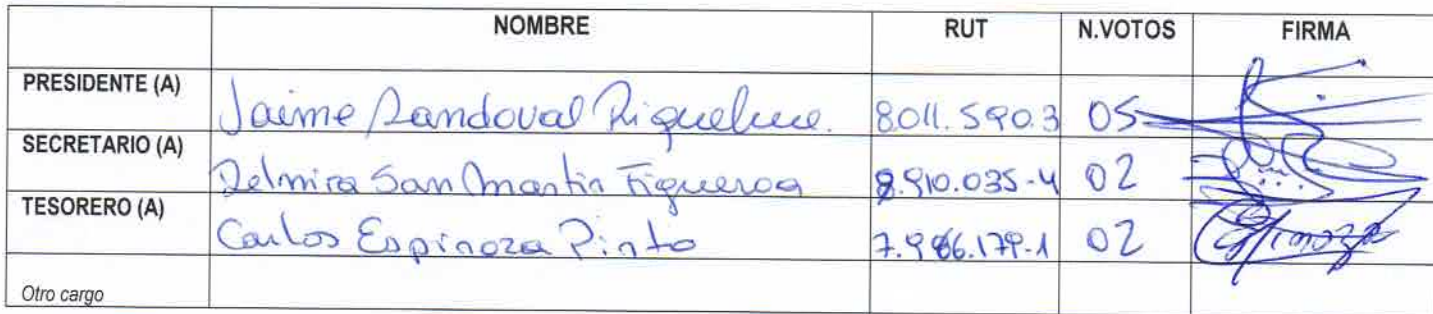 NOMBRE RUT N.VOTOS FIRMA
PRESIDENTE (A) Jaime Sandoval Riquelme. 8.011.590.3 05
SECRETARIO (A) Delmira San Martin Figueroa 8.910.035-4 02
TESORERO (A) Carlos Espinoza Pinto 7.986.179-1 02 Espinoza
Otro cargo